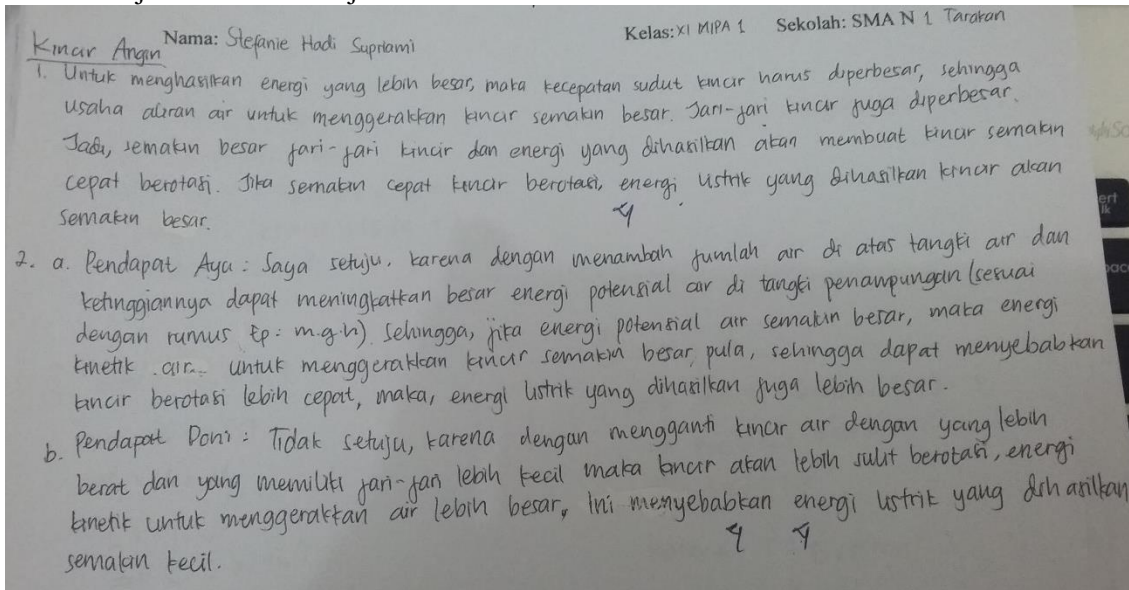 Nama: Stefanie Hadi Supriami Kelas: XI MIPA 1 Sekolah: SMA N 1 Tarakan
Kincir Angin
1. Untuk menghasilkan energi yang lebih besar, maka kecepatan sudut kincir harus diperbesar, sehingga
usaha aliran air untuk menggerakkan kincir semakin besar. Jari-jari kincir juga diperbesar.
Jadi, semakin besar jari-jari kincir dan energi yang dihasilkan akan membuat kincir semakin
cepat berotasi. Jika semakin cepat kincir berotasi, energi listrik yang dihasilkan kincir akan
semakin besar.
4
2. a. Pendapat Ayu : Saya setuju, karena dengan menambah jumlah air di atas tangki air dan
ketinggiannya dapat meningkatkan besar energi potensial air di tangki penampungan (sesuai
dengan rumus Ep : m.g.h). Sehingga, jika energi potensial air semakin besar, maka energi
kinetik air untuk menggerakkan kincir semakin besar pula, sehingga dapat menyebabkan
kincir berotasi lebih cepat, maka, energi listrik yang dihasilkan juga lebih besar.
b. Pendapat Doni : Tidak setuju, karena dengan mengganti kincir air dengan yang lebih
berat dan yang memiliki jari-jari lebih kecil maka kincir akan lebih sulit berotasi, energi
kinetik untuk menggerakkan air lebih besar, Ini menyebabkan energi listrik yang dihasilkan
semakin kecil.
4 4